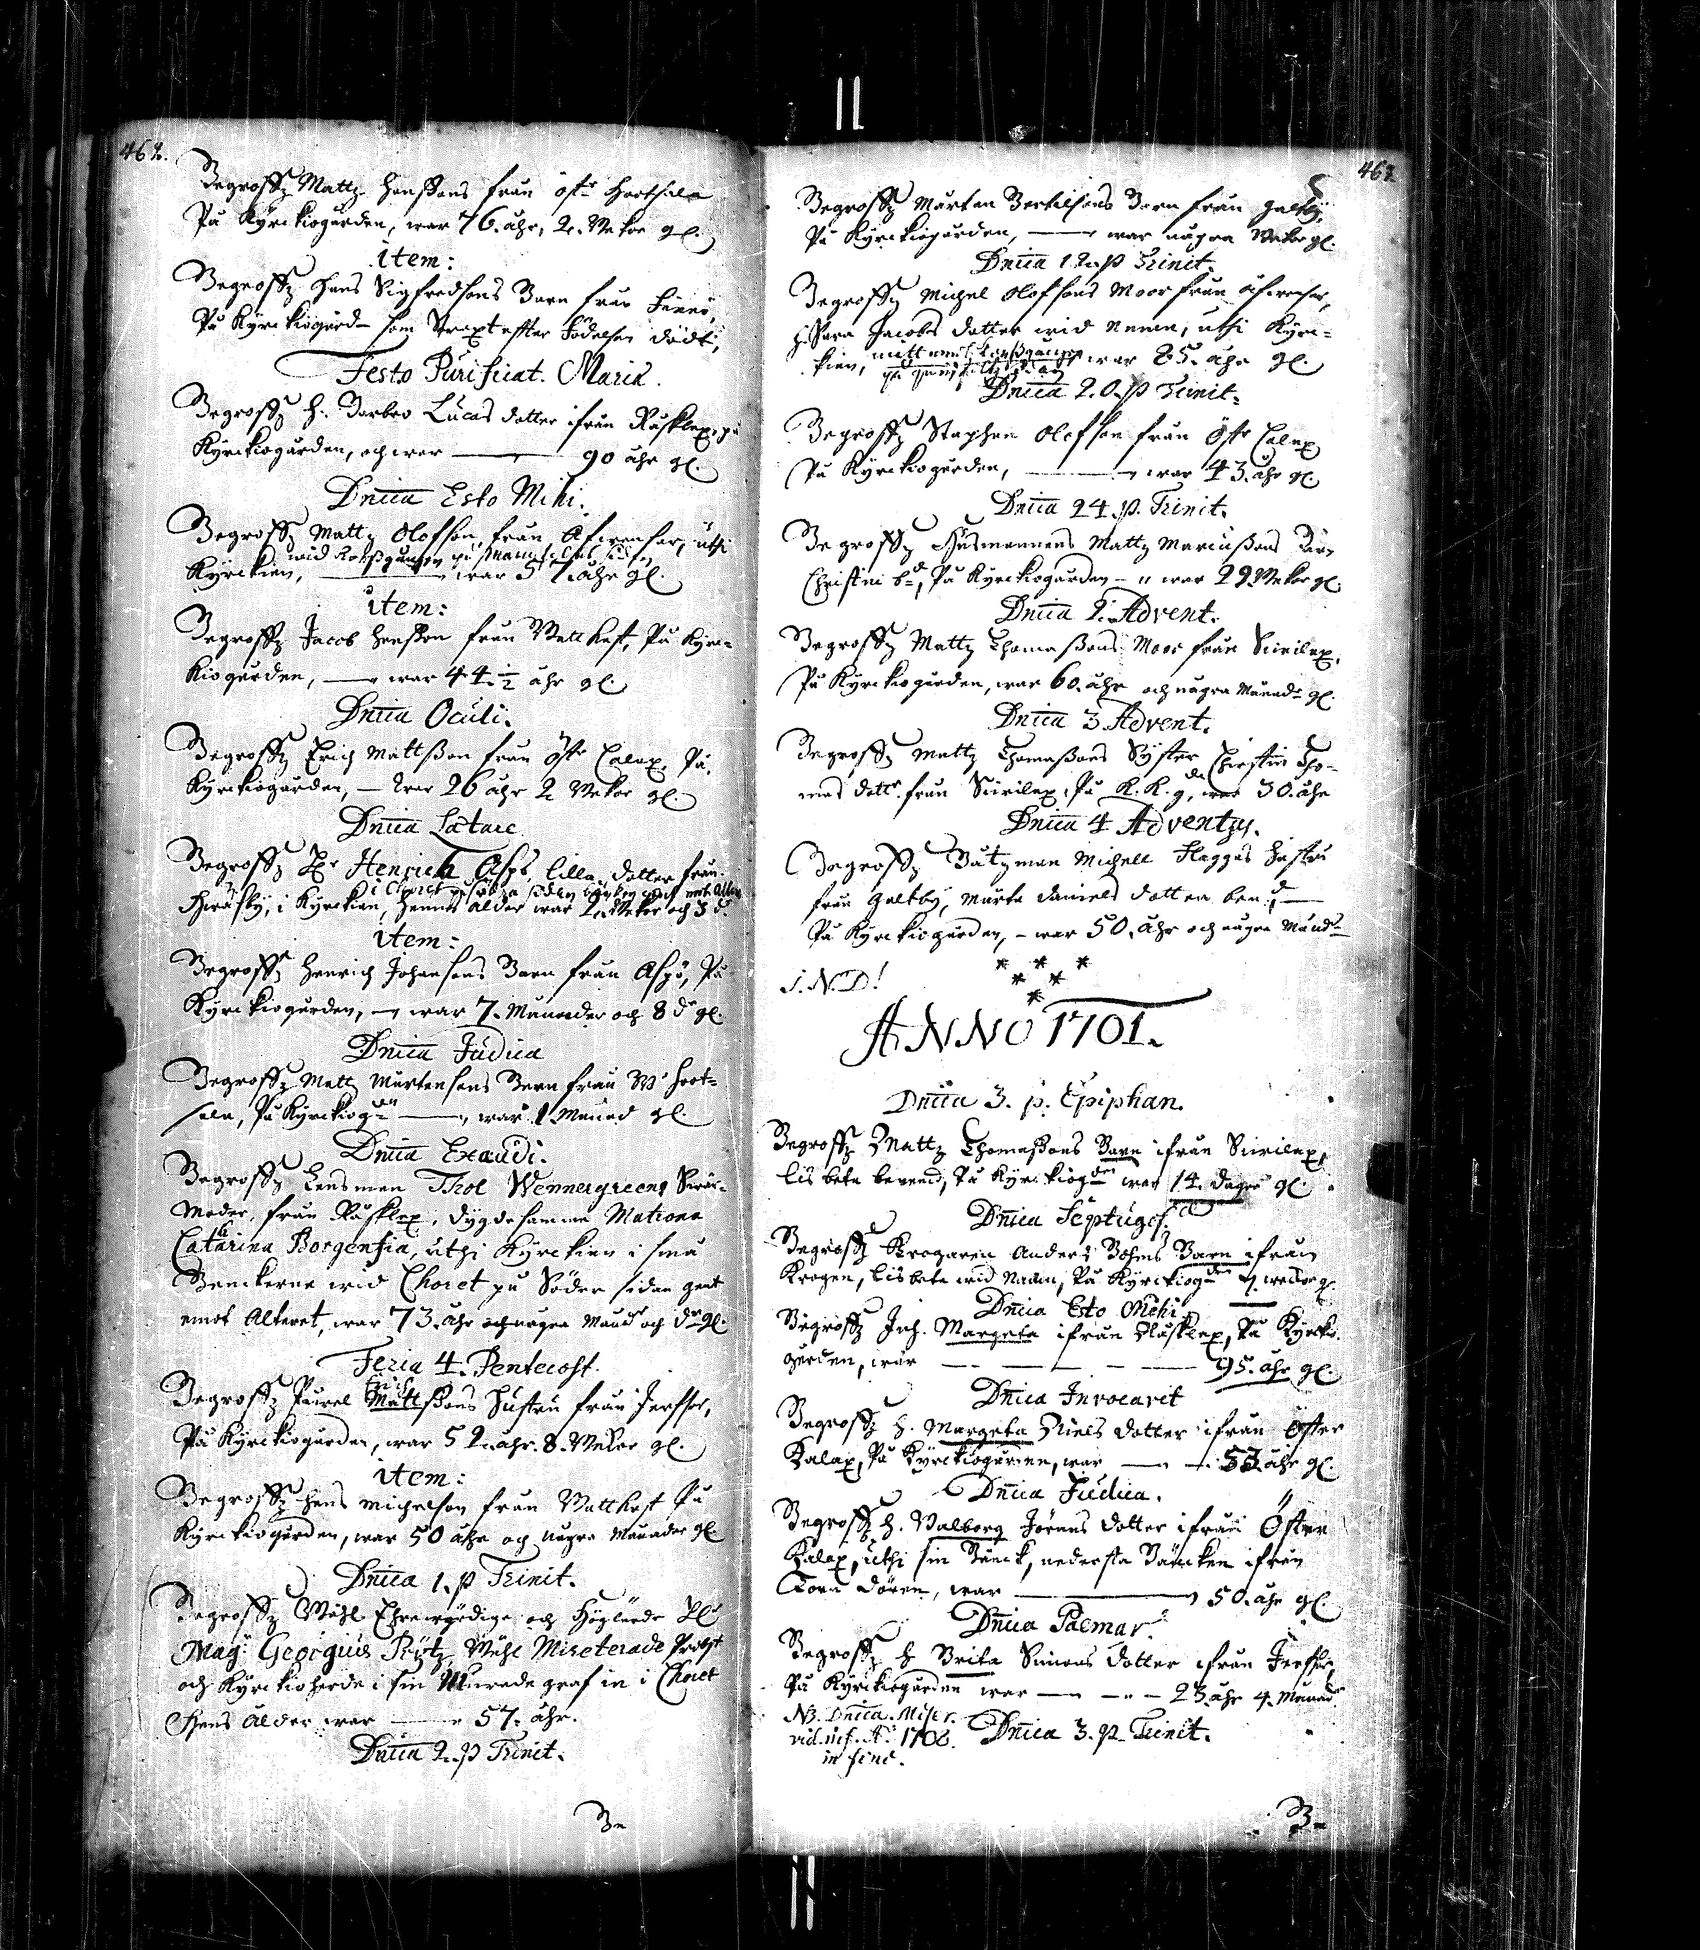 462.
Begroffz Mattz Hanssons från östr Hortsala
På Kyrckiogården, war 76. åhr, 2. Wekor gl.
item:
Begroffz Hans Sigfredsons Barn från Finnö,
På Kyrckiogård som straxt effter Födelsen dödt,
Festo Purificat. Mariæ.
Begroffz H. Barbro Lucas dotter ifrån Råsklax, på
Kyrckiogården, och war 90 åhr gl.
Dnica Esto Mihi.
Begroffz Mattz Olofson från Afwensor, uthi
wid korssgången på
Kyrckian, war 57. åhr gl.
item:
Begroffz Jacob Hansson från Wattkast, På Kyrc-
kiogården, war 44.½ åhr gl.
Dnica Oculi.
Begroffz Erich Mattsson från Östr Calax. På
Kyrckiogården, war 26 åhr 2 Wekor gl.
Dnica Lætare
Begroffz Hr Henrich Asps lilla dotter från
i Choret på södra sidan
Hwäsby, i Kyrckian, hennes ålder war 2. Wekor och 3 d.
item:
Begroffz Henrich Johansons Barn från Aspö, På
Kyrckiogården, war 7. Månader och 8 d. gl.
Dnica Judica
Begroffz Matz Mårtensons Barn från W. Hort-
sala, På Kyrckiogdn war 1 Månad gl.
Dnica Exaudi.
Begroffz Lensman Thol Wennergreens Swär-
moder, från Råsklax, dygdesamma Matrona
Catarina Borgensia, uthi Kyrckian i små
Benckerne wid Choret på Söder sidan gent
emot Altaret, war 73. åhr och några Månadr och dr gl.
Feria 4. Pentecost.
Begroffz Påwel Mattssons Hustru från Jerfsor,
På Kyrckiogården, war 52. åhr. 8. Wekor gl.
item:
Begroffz Hans Michelson från Wattkast På
Kyrckiogården, war 50 åhr och några Månader gl.
Dnica 1. p Trinit.
Begroffz Wähl Ehrewyrdige och Höglärde Hr
Mag. Georgius Prytz, Wähl Meriterade Probst
och Kyrckioherde i sin Murade graf in i Choret
Hans ålder war 57. åhr.
Dnica 2. p Trinit.
Be
463
Begroffz Mårten Bertilsons Barn från Galtby,
På Kyrckiogården, war några Wekor gl.
Dnica 12. p Trinit.
Begroffz Michel Olofsons Moor från Afwensor,
H. Sara Jacobs dotter wid namn, uthi Kyrc-
kian, mitt emot korssgången war 85. åhr gl.
Dnica 20. p Trinit.
Begroffz Staphan Olofson från Östr Calax
På Kyrckiogården, war 43. åhr gl.
Dnica 24. p. Trinit.
Begroffz Husmannens Mattz Marcussons Barn
Christin bd, På Kyrckiogården war 29. Wekor gl.
Dnica 2. Advent.
Begroffz Mattz Thomassons Moor från Simlax,
På Kyrckiogården, war 60. åhr och några Månadr gl.
Dnica 3. Advent.
Begroffz Mattz Thomassons Syster Christin Tho-
mas dottr från Simlax, På K. K. gdn, war 30. åhr
Dnica 4 Adventus.
Begroffz Båtzman Michell Flaggas Hustru
från Galtby, Märta Daniels dotter ben:d
På Kyrckiogården, war 50. åhr och några Månadr
* * *
* *
*
I. N. D!
ANNO 1701.
Dnica 3. p. Epiphan.
Begroffz Mattz Thomassons Barn ifrån Simlax,
Lisbeta benemd, På Kyrckiogdn war 14. dagar gl.
Dnica Septuages.
Begroffz Krogaren Anders Bohms Barn ifrån
Krogen, Lisbeta wid Namn, På Kyrckiogdn 7. wekor gl.
Dnica Esto Mihi
Begroffz Inh. Margeta ifrån Råsklax, På Kyrckio
gården, war 95. åhr gl.
Dnica Invocavit
Begroffz H. Margeta Niels dotter ifrån Öster
Kalax, På Kyrckiogården, war 53 åhr gl.
Dnica Judica.
Begroffz H. Valborg Jörans dotter ifrån Öster
Kalax, uthi sin Bänck, nedersta Bäncken ifrån
Stora dören, war 50. åhr gl.
Dnica Palmar.
Begroffz H Brita Simons dotter ifrån Jerfsor,
På Kyrckiogården war 23. åhr 4. Månad
NB. Dnica. Miser.
vid. inf. Ao 1708.
in fine.
Dnica 3. p. Trinit.
Be